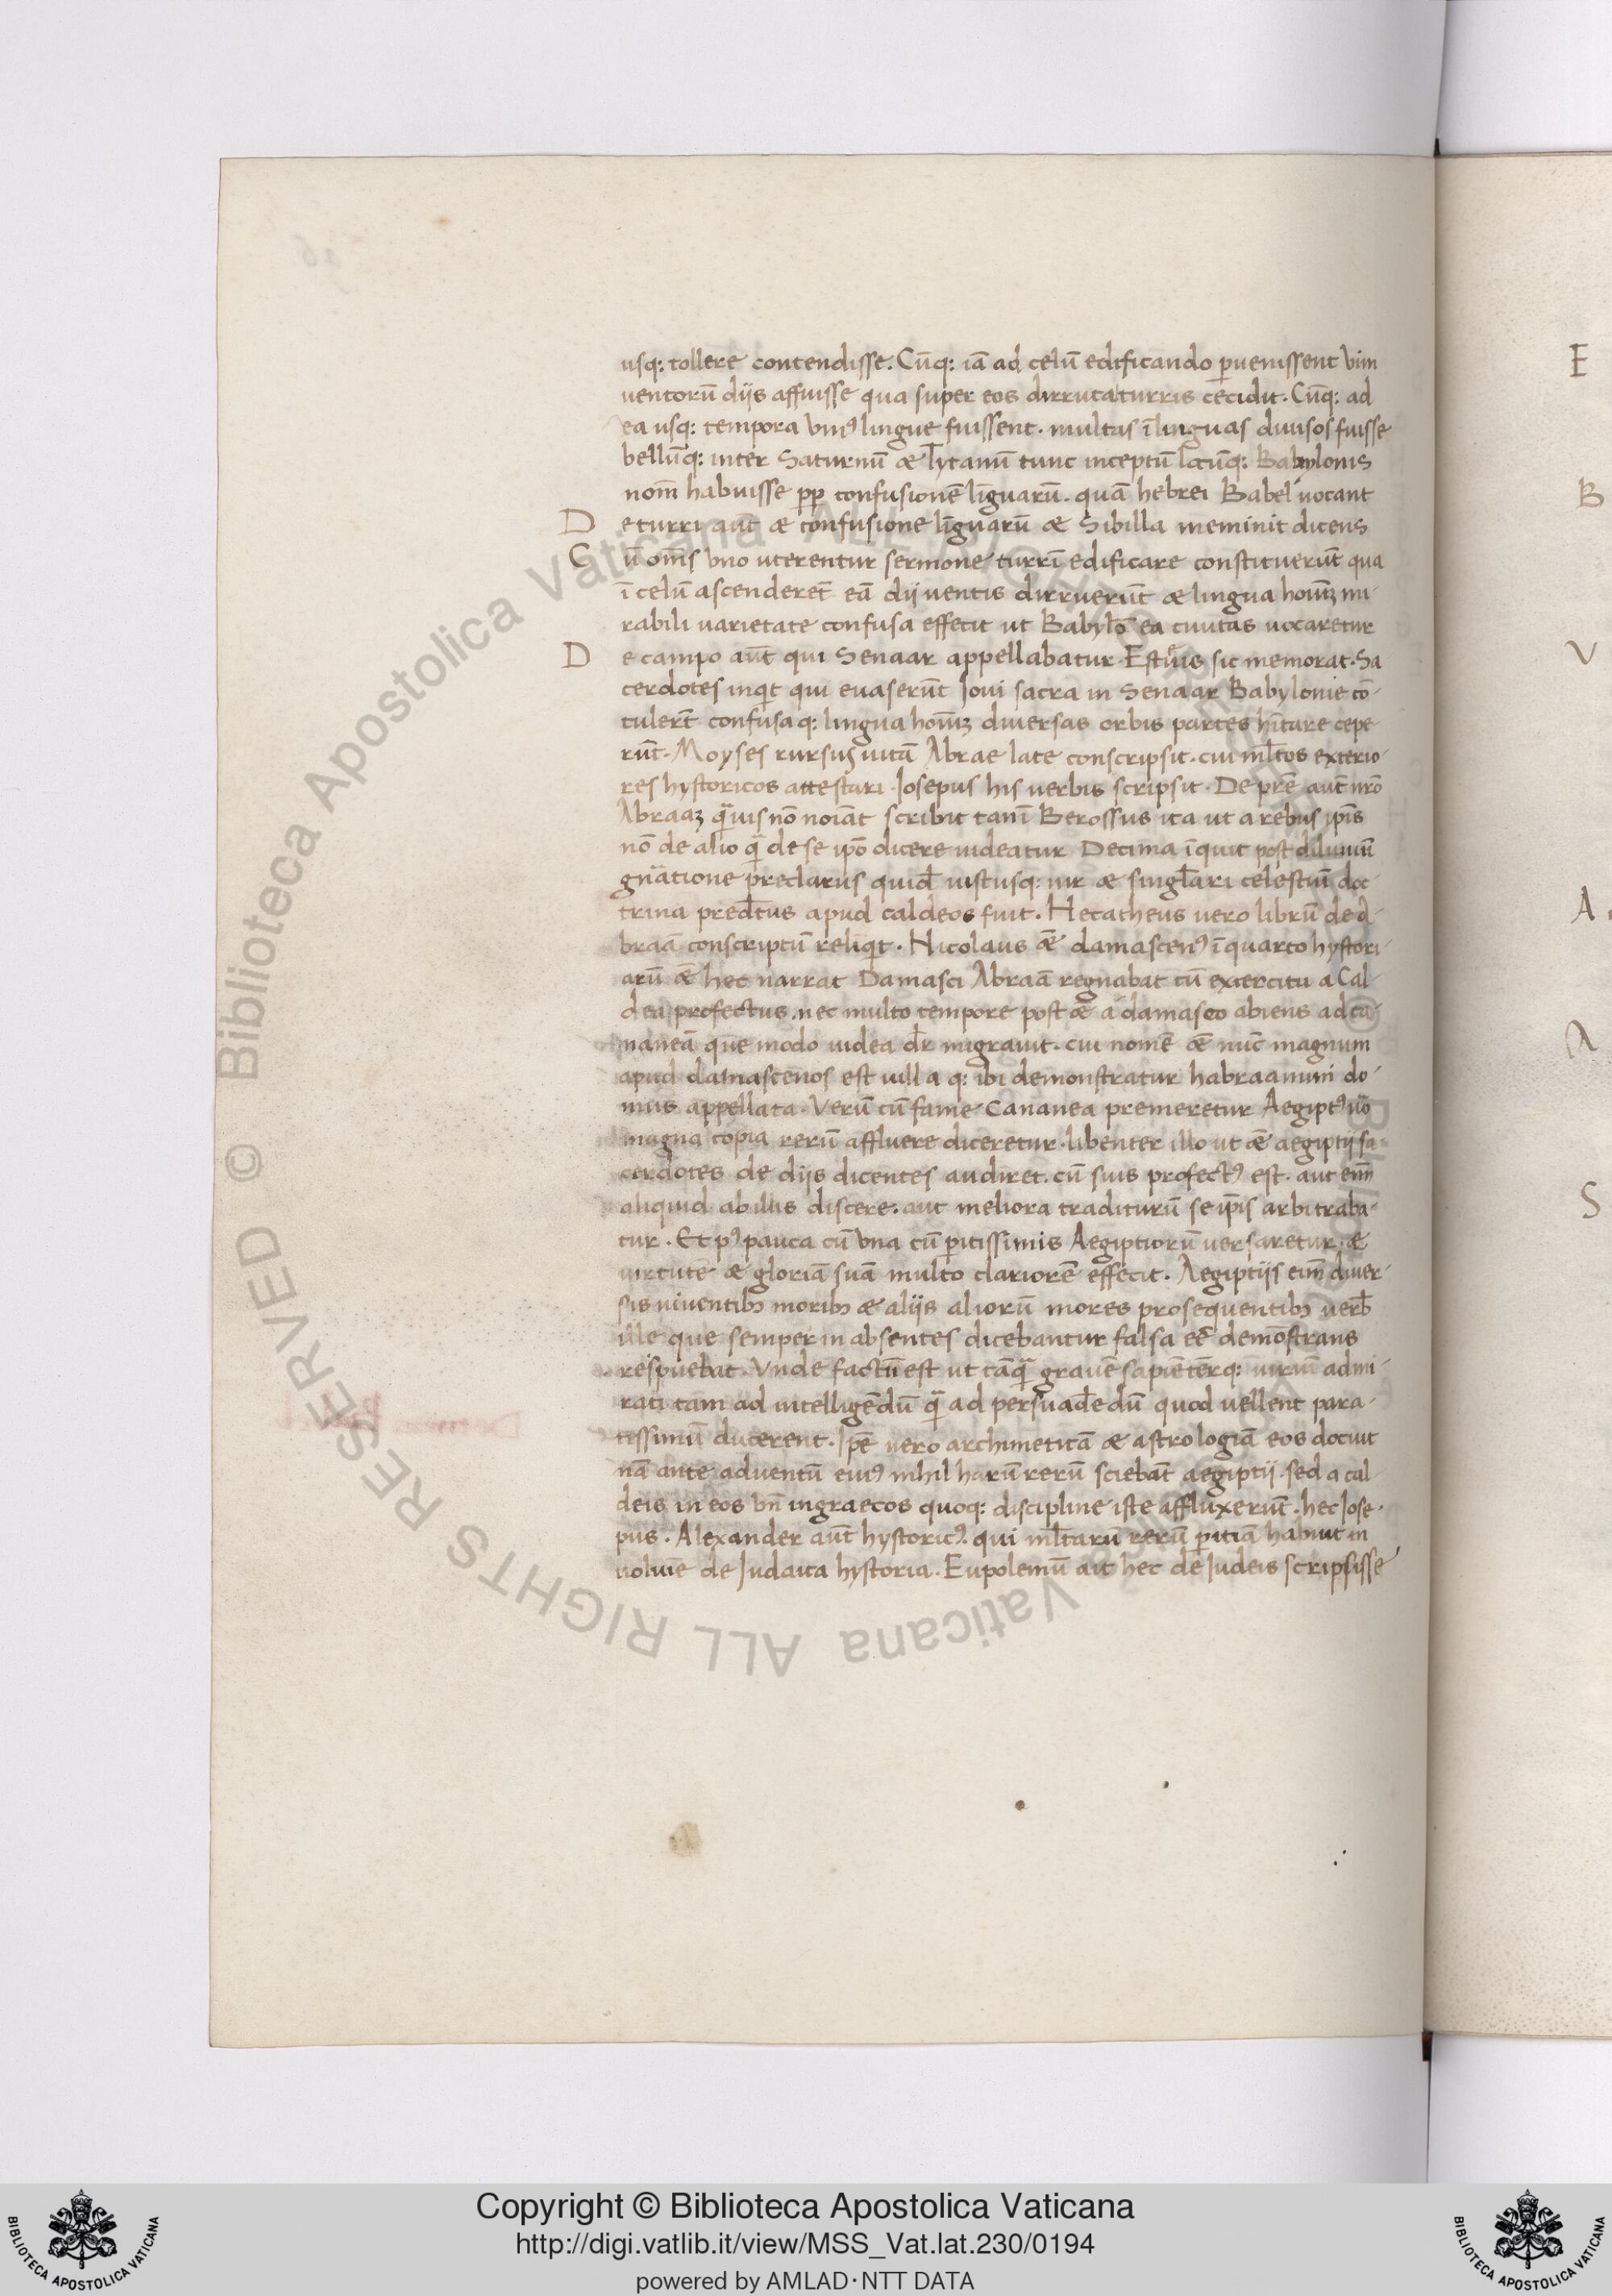 usq: tollere contendisse. Cūq: iā ad celū edificando ꝑuenissent vim
uentorū dijs affuisse qua super eos dirruta turris cecidit. Cūq: ad
ea usq: tempora vniꝰ lingue fuissent. multas ī linguas diuisos fuisse
bellūq: inter Saturnū & Tytanū tunc inceptū Babylonis
nom̄ habuisse ꝓp confusionē linguarū. quā hebrei Babel uocant
De turri aut̄ & confusione linguarū & Sibilla meminit dicens
Cū om̄s vno uterentur sermone turrī edificare constituerūt qua
ī celū ascenderēt eā dij uentis dirruerūt & lingua hoīuꝫ mi-
rabili uarietate confusa effecit ut Babylō ea ciuitas uocaretur
De campo aut̄ qui Senaar appellabatur. sic memorat. Sa
cerdotes inqͥt qui euaserūt Ioui sacra in Senaar Babylonie cō-
tulerūt confusa q: lingua hoīuꝫ diuersas orbis partes hītare cepe
rūt. Moyses rursus uitā Abrae late conscripsit. cui ml̄tos exterio-
res hystoricos attestari. Iosepus his uerbis scripsit. De pr̄e aut̄ nr̄o
Abraaꝫ qͣuis nō noiāt scribit tam̄ Berossus ita ut a rebus ip̄is
nō de alio qͣ de se ip̄o dicere uideatur Decima īquit post diluuiū
gnatione preclarus quid̄ iustusq: uir & singl̄ari celestiū doc-
trina pred̄tus apud caldeos fuit. Hecatheus uero librū de A-
braā conscriptū reliqͥt. Nicolaus &̄ damascenꝰ ī quarto hystori-
arū &̄ hec narrat Damasci Abraā regnabat cū exercitu a Cal-
dea profectus. nec multo tempore post &̄ a damasco abiens ad ca-
naneā que modo iudea dr̄ migrauit. cui nomē &̄ nūc magnum
apud damascenos est uilla q: ibi demonstratur habraamini do-
mus appellata. Verū cū fame Cananea premeretur Aegiptꝰ uō
magna copia rerū affluere diceretur. libenter illo ut &̄ aegiptij sa-
cerdotes de dijs dicentes audiret. cū suis profectꝰ est. aut eīm
aliquid ab illis discere. aut meliora traditurū se ip̄is arbitraba-
tur. Et pꝰ pauca cū vna cū ꝑitissimis Aegiptiorū uersaretur. &
uirtutē & gloriā suā multo clariorē effecit. Aegiptijs eīm diuer-
sis uiuentibꝫ moribꝫ & alijs aliorū mores prosequentibꝫ uerb̄
ille que semper in absentes dicebantur falsa eē demōstrans
respuebat. Vnde factū est ut tāqͣ grauē sapiētēq: uirum admi-
rati tam ad intelligēdū qͣ ad persuadēdū quod uellent para-
tissimū ducerent. Ip̄e uero archimeticā & astrologiā eos docuit
nā ante aduentū eiuꝰ nihil harū rerū sciebāt aegiptij. sed a cal
deis in eos vn̄ in graecos quoq: discipline iste affluxerūt. hec Iose-
pus. Alexander aut̄ hystoricꝰ. qui ml̄tarū rerū ꝑitiā habuit in
uoluīe de Iudaica hystoria. Eupolemū ait hec de Iudeis scripsisse
E
B
V
A
A
S
Copyright © Biblioteca Apostolica Vaticana
http://digi.vatlib.it/view/MSS_Vat.lat.230/0194
powered by AMLAD·NTT DATA
BIBLIOTECA APOSTOLICA VATICANA
BIBLIOTECA APOSTOLICA VATICANA
© Biblioteca Apostolica Vaticana ALL RIGHTS RESERVED